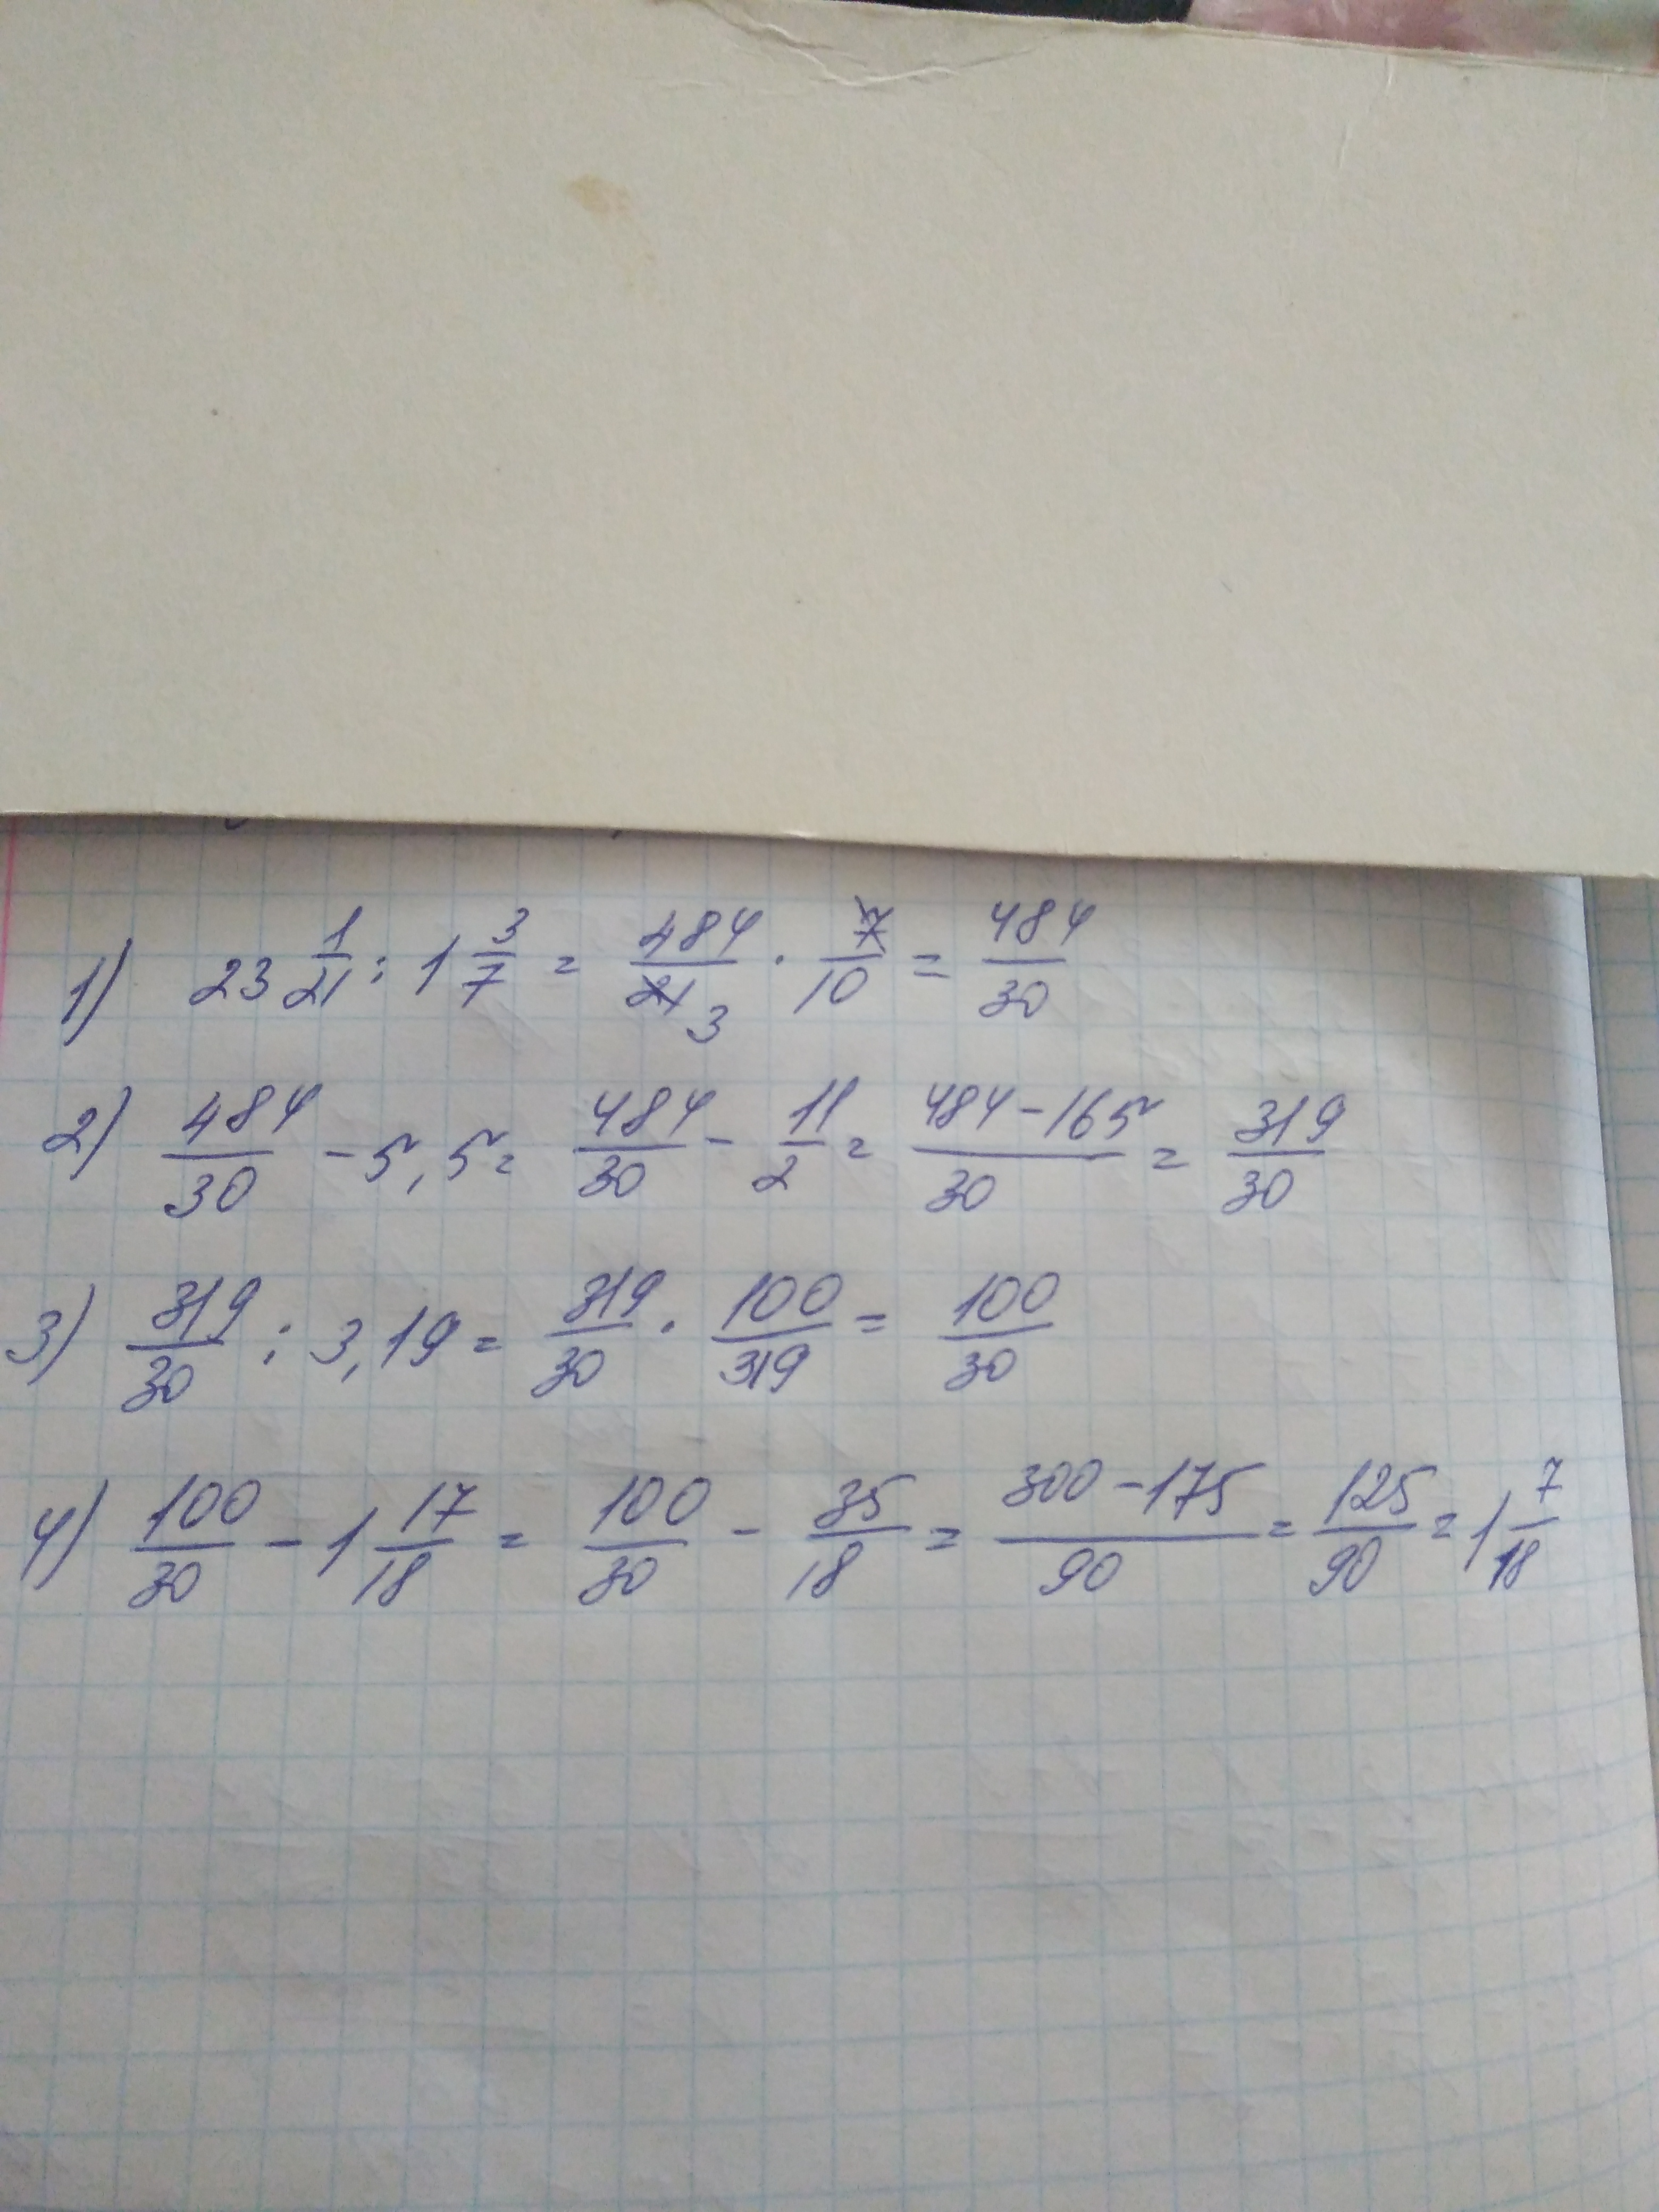 1) 23 1/21 : 1 3/7 = 484/21 3 · 7/10 = 484/30
2) 484/30 - 5,5 = 484/30 - 11/2 = 484-165/30 = 319/30
3) 319/30 : 3,19 = 319/30 · 100/319 = 100/30
4) 100/30 - 1 17/18 = 100/30 - 35/18 = 300-175/90 = 125/90 = 1 7/18